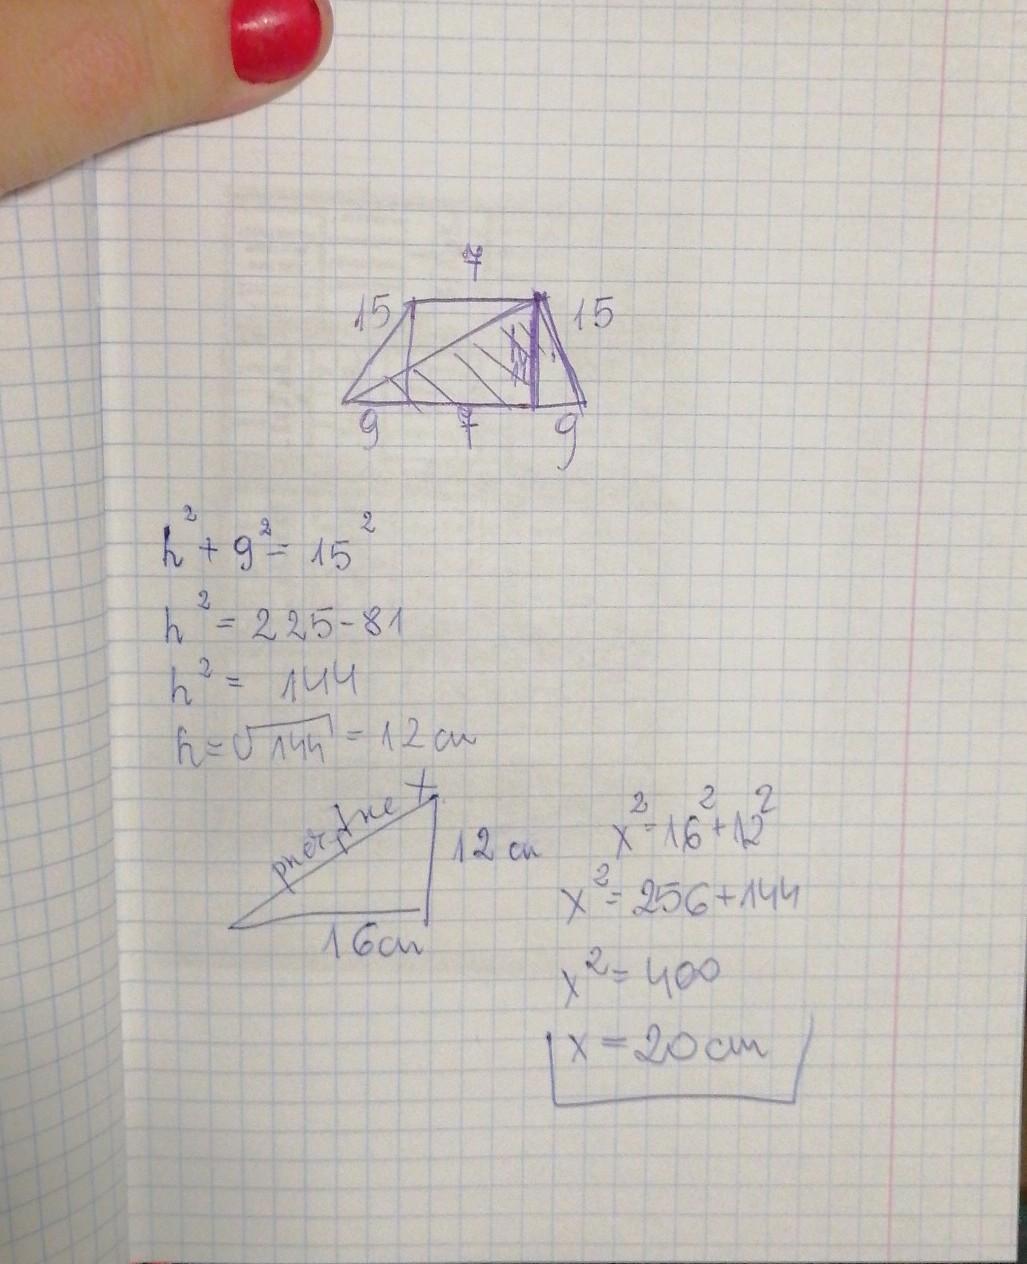 7
15 15
9 7 9
h² + 9² = 15²
h² = 225 - 81
h² = 144
h = √144 = 12 cm
x
12 cm
16 cm
x² = 16² + 12²
x² = 256 + 144
x² = 400
x = 20 cm